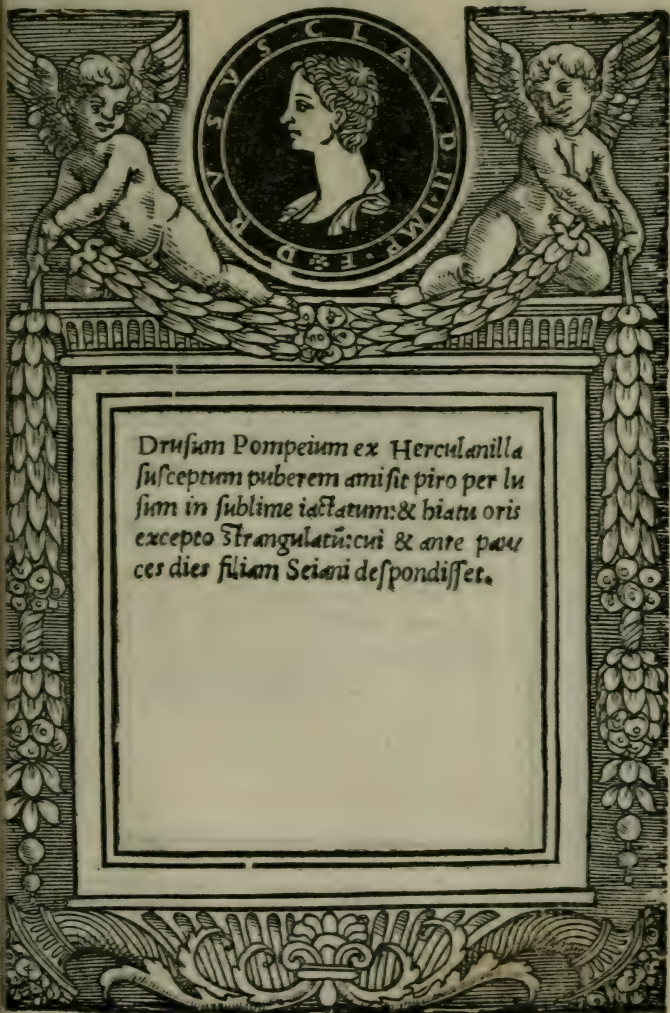 DRVSVS CLAVDII·IMP·F
Druſum Pompeium ex Herculanilla
ſuſceptum puberem amiſit piro per lu
ſum in ſublime iactatum:& hiatu oris
excepto ſtrangulatū:cui & ante pau
ces dies filiam Seiani deſpondiſſet.